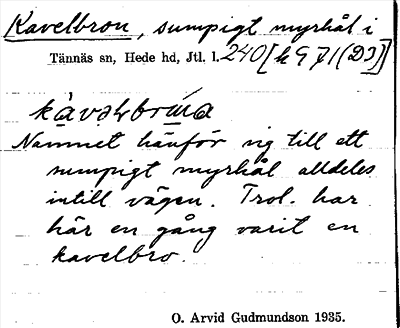 Kavelbron, sumpigt myrhål i
Tännäs sn, Hede hd, Jtl. l. 240 [h 971 (DI)]
Namnet hänför sig till ett
sumpigt myrhål alldeles
intill vägen. Trol. har
här en gång varit en
kavelbro.
O. Arvid Gudmundson 1935.